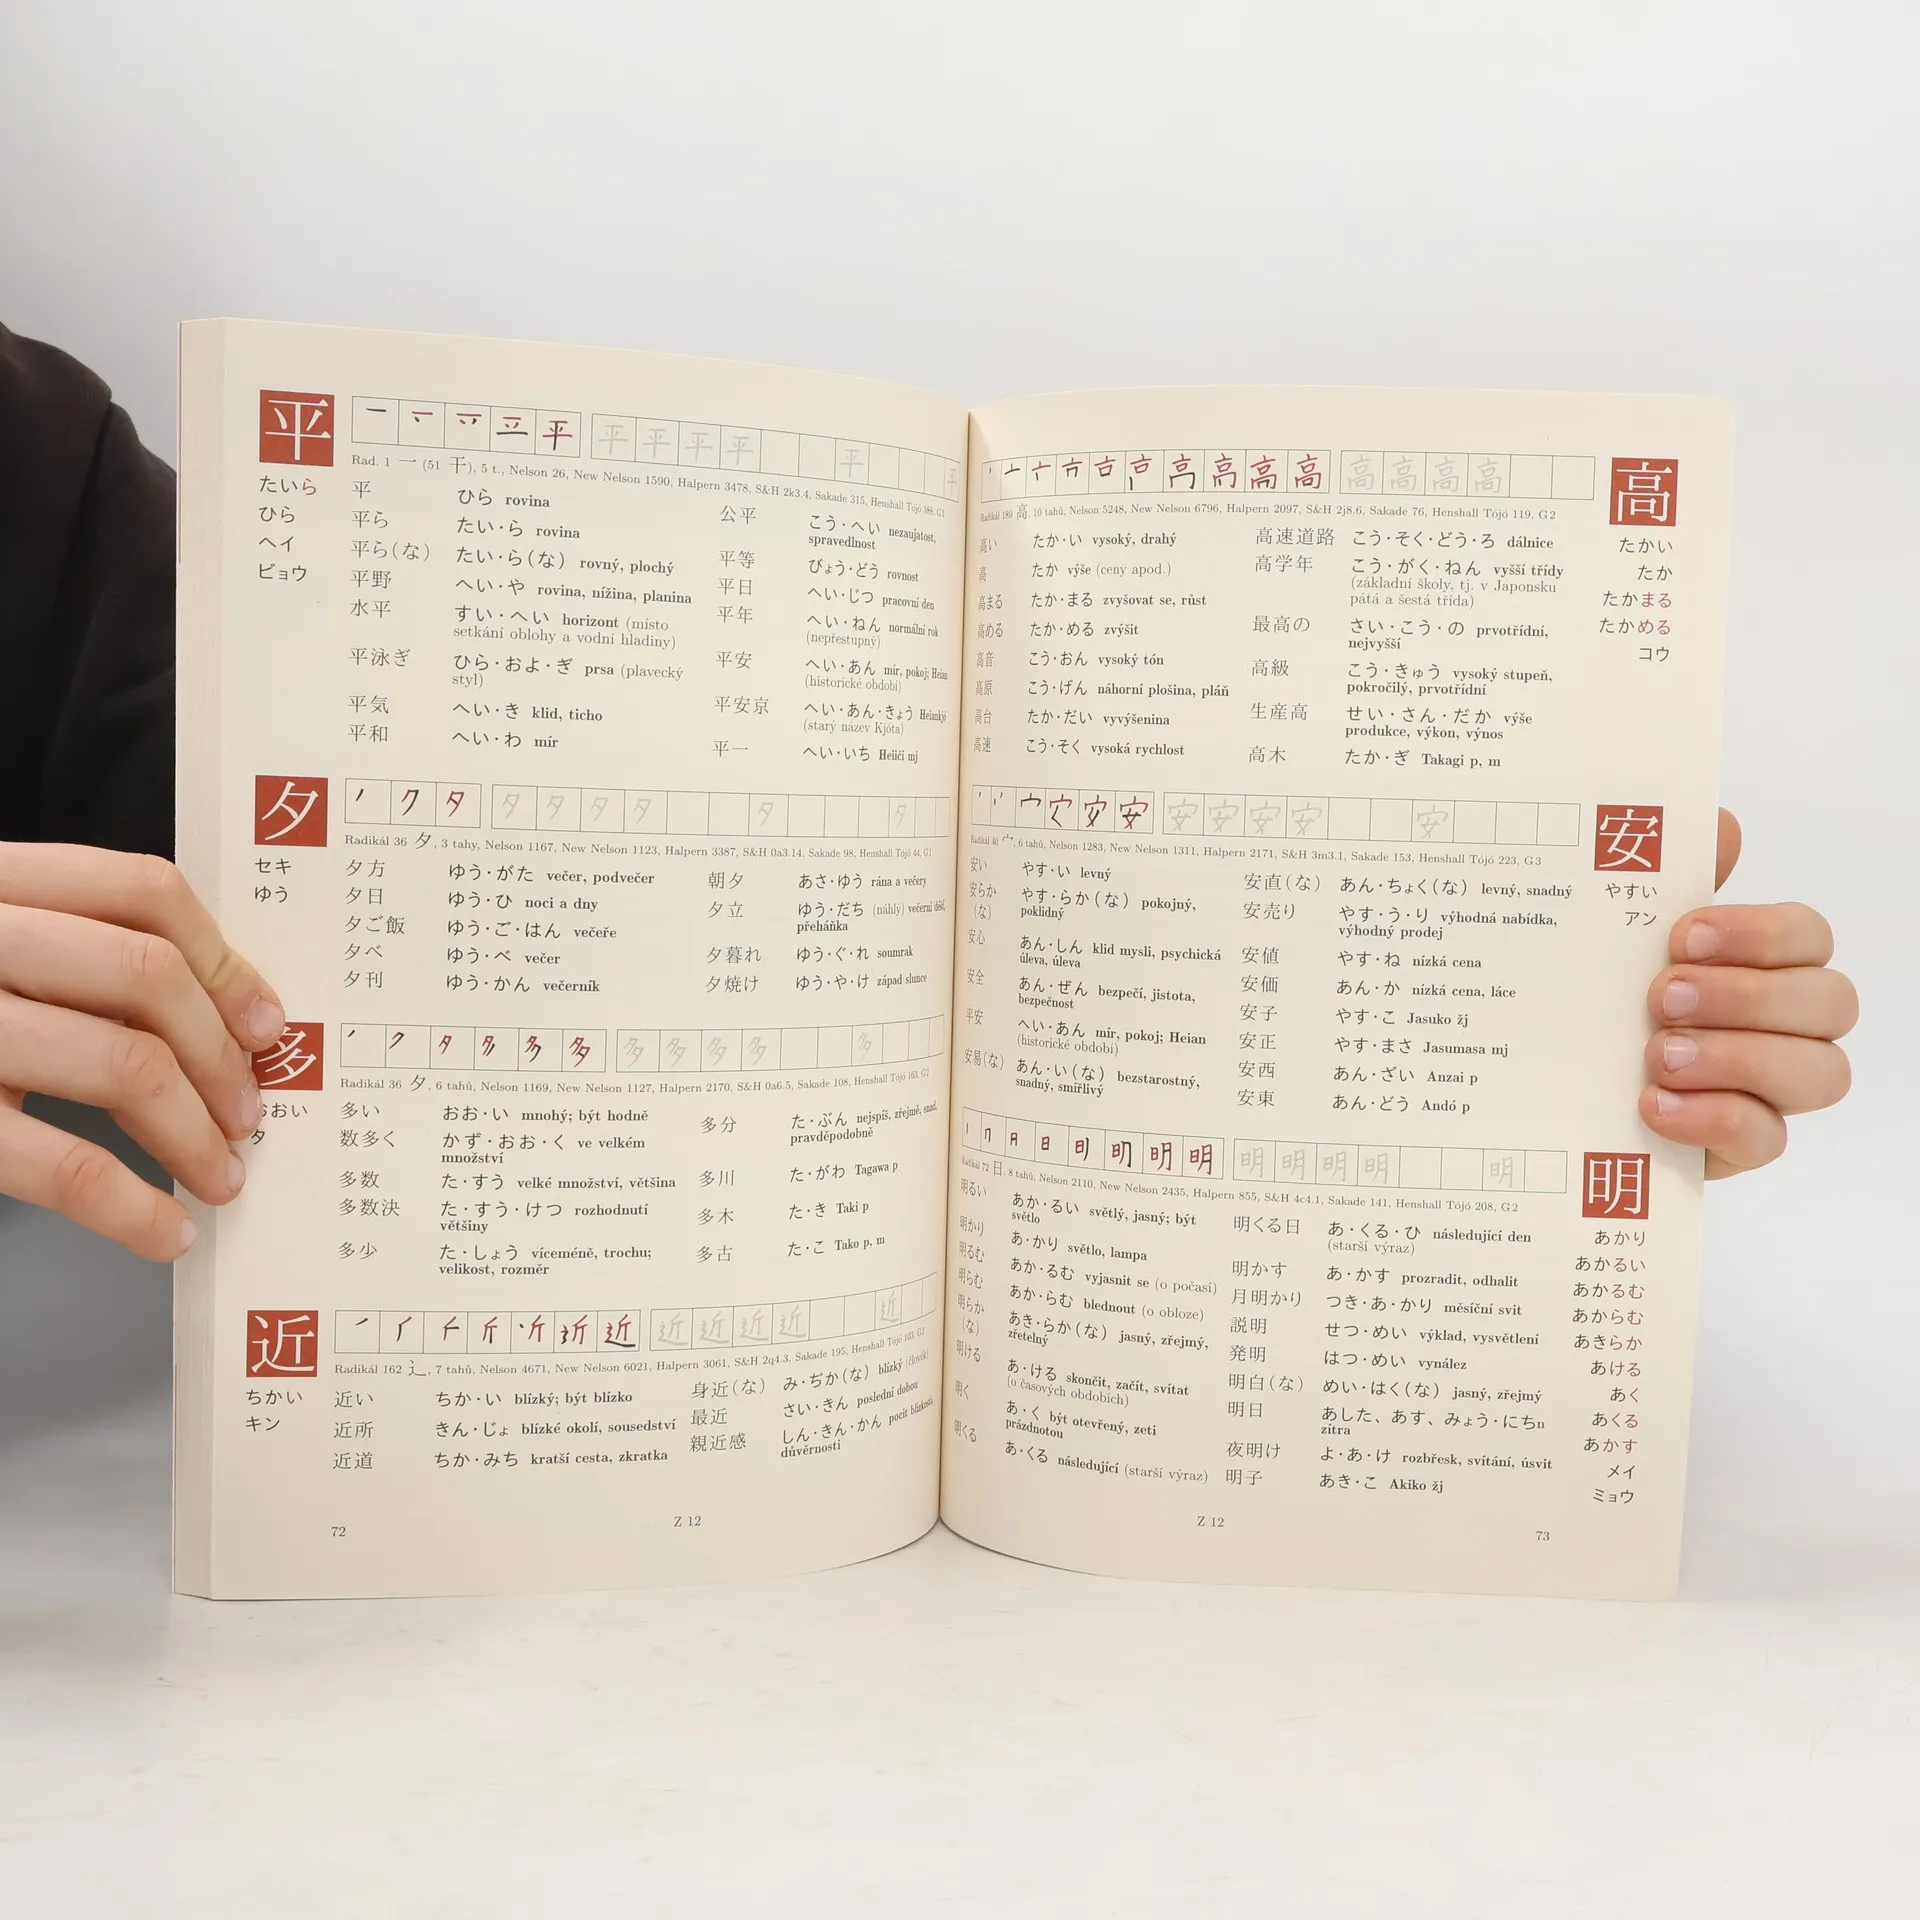 平
たいら
ひら
ヘイ
ビョウ
Rad. 1 一 (51 干), 5 t., Nelson 26, New Nelson 1590, Halpern 3478, S&H 2k3.4, Sakade 315, Henshall Tójó 388, G3
平 ひら rovina
平ら たい·ら rovina
平ら(な) たい·ら(な) rovný, plochý
平野 へい·や rovina, nížina, planina
水平 すい·へい horizont (místo
setkání oblohy a vodní hladiny)
平泳ぎ ひら·およ·ぎ prsa (plavecký
styl)
平気 へい·き klid, ticho
平和 へい·わ mír
公平 こう·へい nezaujatost,
spravedlnost
平等 びょう·どう rovnost
平日 へい·じつ pracovní den
平年 へい·ねん normální rok
(nepřestupný)
平安 へい·あん mír, pokoj; Heian
(historické období)
平安京 へい·あん·きょう Heiankjó
(starý název Kjóta)
平一 へい·いち Heiiči mj
夕
セキ
ゆう
Radikál 36 夕, 3 tahy, Nelson 1167, New Nelson 1123, Halpern 3387, S&H 0a3.14, Sakade 98, Henshall Tójó 44, G1
夕方 ゆう·がた večer, podvečer
夕日 ゆう·ひ noci a dny
夕ご飯 ゆう·ご·はん večeře
夕べ ゆう·べ večer
夕刊 ゆう·かん večerník
朝夕 あさ·ゆう rána a večery
夕立 ゆう·だち (náhlý) večerní déšť,
přeháňka
夕暮れ ゆう·ぐ·れ soumrak
夕焼け ゆう·や·け západ slunce
多
おおい
タ
Radikál 36 夕, 6 tahů, Nelson 1169, New Nelson 1127, Halpern 2170, S&H 0a6.5, Sakade 108, Henshall Tójó 163, G2
多い おお·い mnohý; být hodně
数多く かず·おお·く ve velkém
množství
多数 た·すう velké množství, většina
多数決 た·すう·けつ rozhodnutí
většiny
多少 た·しょう víceméně, trochu;
velikost, rozměr
多分 た·ぶん nejspíš, zřejmě, snad,
pravděpodobně
多川 た·がわ Tagawa p
多木 た·き Taki p
多古 た·こ Tako p, m
近
ちかい
キン
Radikál 162 辶, 7 tahů, Nelson 4671, New Nelson 6021, Halpern 3061, S&H 2q4.3, Sakade 195, Henshall Tójó 103, G2
近い ちか·い blízký; být blízko
近所 きん·じょ blízké okolí, sousedství
近道 ちか·みち kratší cesta, zkratka
身近(な) み·ぢか(な) blízký (člověk)
最近 さい·きん poslední dobou
親近感 しん·きん·かん pocit blízkosti,
důvěrnosti
72
Z 12
高
たかい
たか
たかまる
たかめる
コウ
Radikál 189 高, 10 tahů, Nelson 5248, New Nelson 6796, Halpern 2097, S&H 2j8.6, Sakade 76, Henshall Tójó 119, G2
高い たか·い vysoký, drahý
高 たか výše (ceny apod.)
高まる たか·まる zvyšovat se, růst
高める たか·める zvýšit
高音 こう·おん vysoký tón
高原 こう·げん náhorní plošina, pláň
高台 たか·だい vyvýšenina
高速 こう·そく vysoká rychlost
高速道路 こう·そく·どう·ろ dálnice
高学年 こう·がく·ねん vyšší třídy
(základní školy, tj. v Japonsku
pátá a šestá třída)
最高の さい·こう·の prvotřídní,
nejvyšší
高級 こう·きゅう vysoký stupeň,
pokročilý, prvotřídní
生産高 せい·さん·だか výše
produkce, výkon, výnos
高木 たか·ぎ Takagi p, m
安
やすい
アン
Radikál 40 宀, 6 tahů, Nelson 1283, New Nelson 1311, Halpern 2171, S&H 3m3.1, Sakade 153, Henshall Tójó 223, G3
安い やす·い levný
安らか(な) やす·らか(な) pokojný,
poklidný
安心 あん·しん klid mysli, psychická
úleva, úleva
安全 あん·ぜん bezpečí, jistota,
bezpečnost
平安 へい·あん mír, pokoj; Heian
(historické období)
安易(な) あん·い(な) bezstarostný,
snadný, smířlivý
安直(な) あん·ちょく(な) levný, snadný
安売り やす·う·り výhodná nabídka,
výhodný prodej
安値 やす·ね nízká cena
安価 あん·か nízká cena, láce
安子 やす·こ Jasuko žj
安正 やす·まさ Jasumasa mj
安西 あん·ざい Anzai p
安東 あん·どう Andó p
明
あかり
あかるい
あかるむ
あからむ
あきらか
あける
あく
あくる
あかす
メイ
ミョウ
Radikál 72 日, 8 tahů, Nelson 2110, New Nelson 2435, Halpern 855, S&H 4c4.1, Sakade 141, Henshall Tójó 208, G2
明るい あか·るい světlý, jasný; být
světlo
明かり あ·かり světlo, lampa
明るむ あか·るむ vyjasnit se (o počasí)
明らむ あか·らむ blednout (o obloze)
明らか(な) あき·らか(な) jasný, zřejmý,
zřetelný
明ける あ·ける skončit, začít, svítat
(o časových obdobích)
明く あ·く být otevřený, zeti
prázdnotou
明くる あ·くる následující (starší výraz)
明くる日 あ·くる·ひ následující den
(starší výraz)
明かす あ·かす prozradit, odhalit
月明かり つき·あ·かり měsíční svit
説明 せつ·めい výklad, vysvětlení
発明 はつ·めい vynález
明白(な) めい·はく(な) jasný, zřejmý
明日 あした、あす、みょう·にちn
zítra
夜明け よ·あ·け rozbřesk, svítání, úsvit
明子 あき·こ Akiko žj
Z 12
73